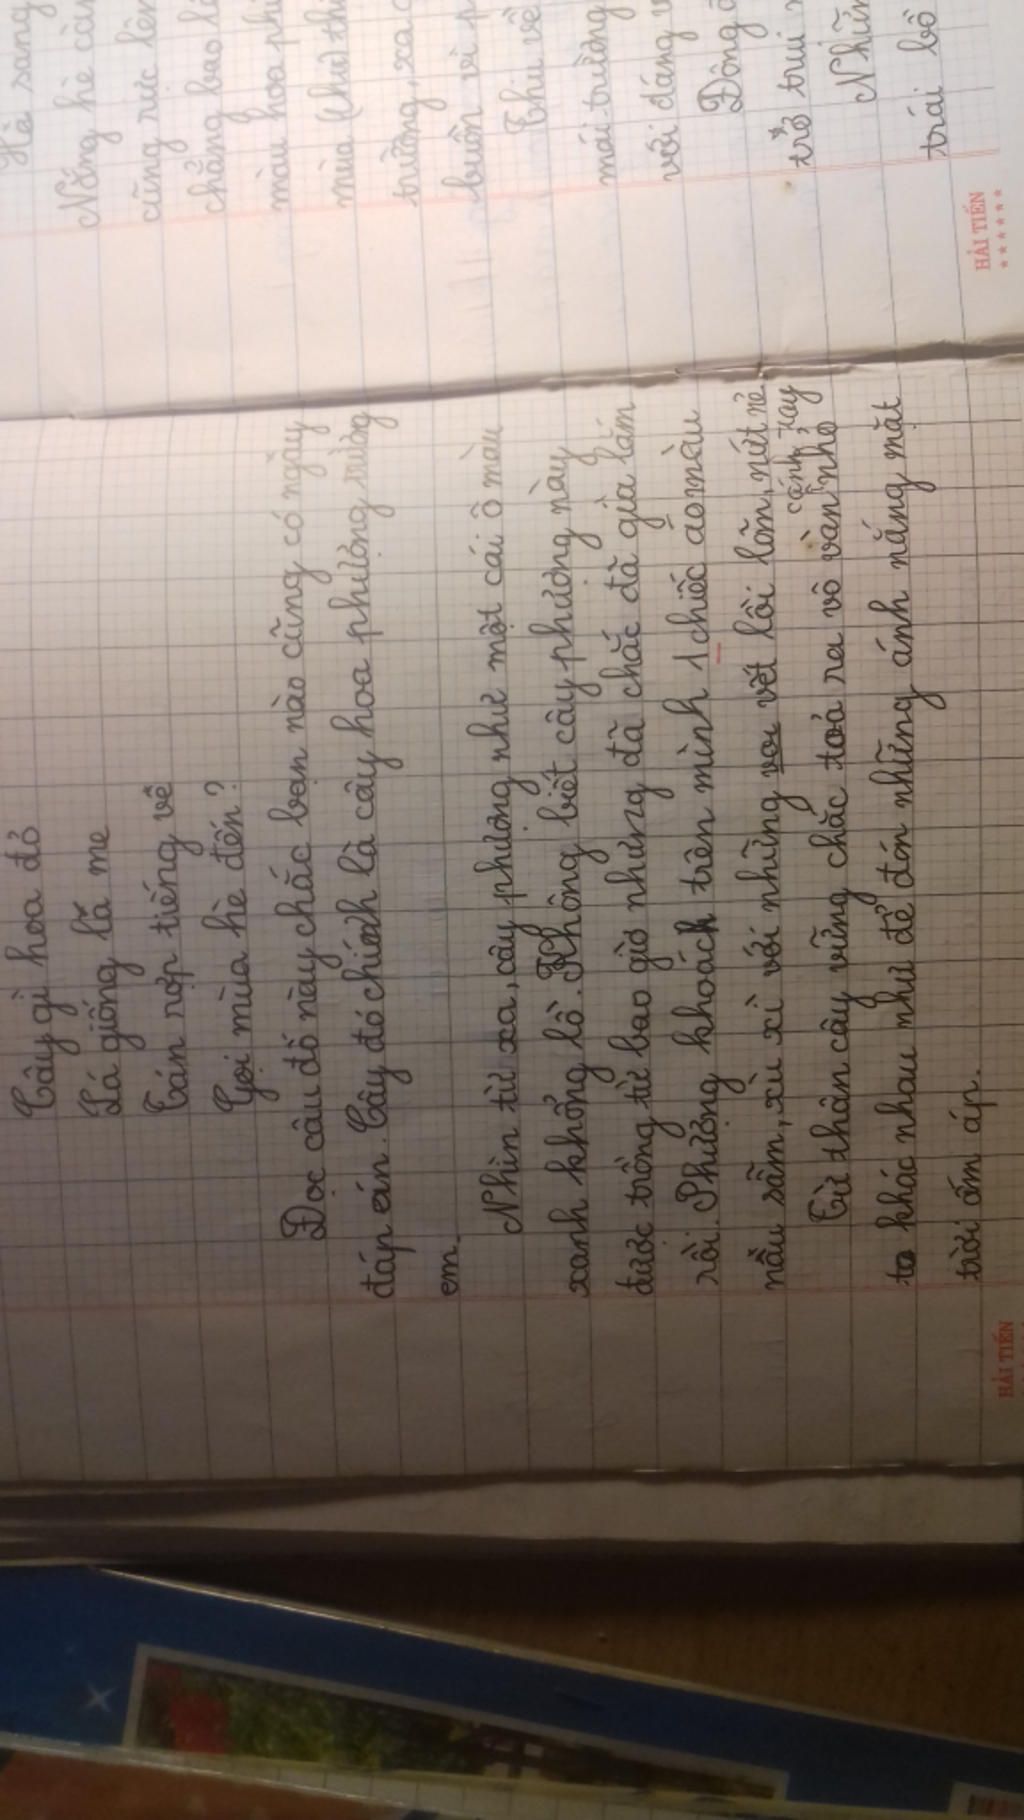 Cây gì hoa đỏ
Lá giống lá me
Tán rợp tiếng ve
Gọi mùa hè đến?
Đọc câu đố này chắc bạn nào cũng có ngay
đáp án. Cây đó chính là cây hoa phượng trường
em.
Nhìn từ xa, cây phượng như một cái ô màu
xanh khổng lồ. Không biết cây phượng này
được trồng từ bao giờ nhưng đã chắc đã già lắm
rồi. Phượng khoác trên mình 1 chiếc áo màu
nâu sẫm, xù xì với những vết lồi lõm, nứt nẻ.
Từ thân cây vững chắc toả ra vô vàn cánh tay nhỏ
to khác nhau như để đón những ánh nắng mặt
trời ấm áp.
HẢI TIẾN
Hè sang
Nắng hè càn
cũng rực lên
chẳng bao l
màu hoa ph
mùa chia th
trường, xa c
buồn vì p
Thu về
mái trường
với dáng v
Đông
trở trui
Nhữn
trái bồ
HẢI TIẾN